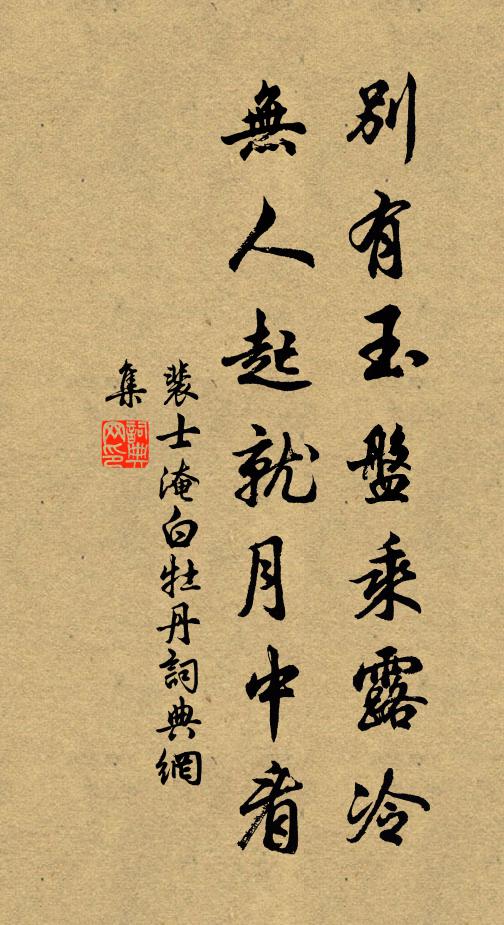 別有玉盤乘露冷
無人起就月中看
裴士淹白牡丹詞典網
集
詞典
网印